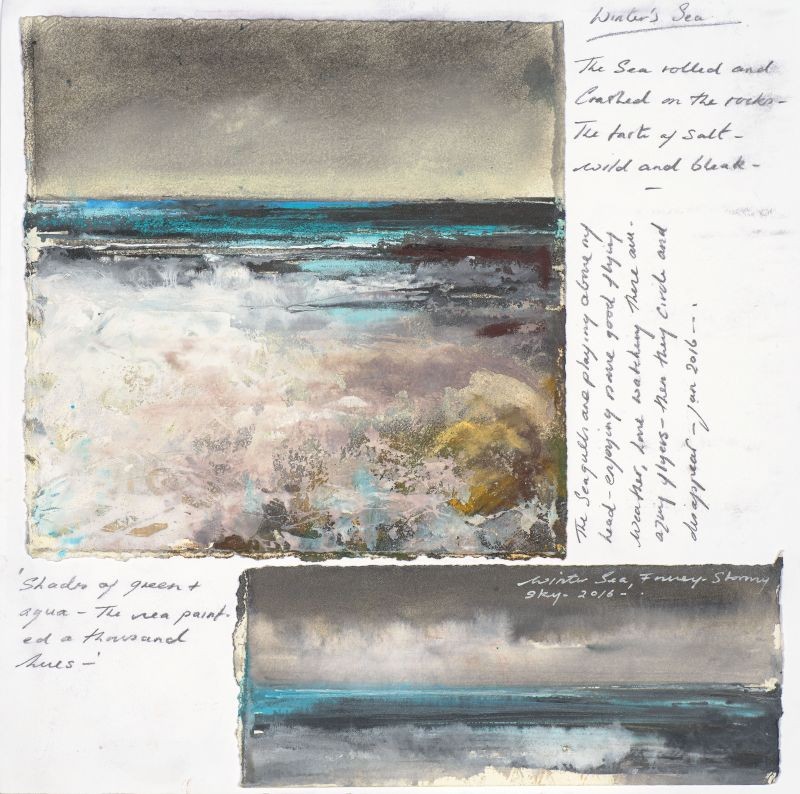 Winter's Sea
The Sea rolled and
Crashed on the rocks -
The taste of salt -
wild and bleak -
-
The Seagulls are playing above my
head - enjoying some good flying
weather, love watching there
flyers - then they circle and
disappear - Jan 2016 - - .
'Shades of green +
aqua - The sea paint-
ed a thousand
hues - '
Winter Sea, Stormy
Sky - 2016 -